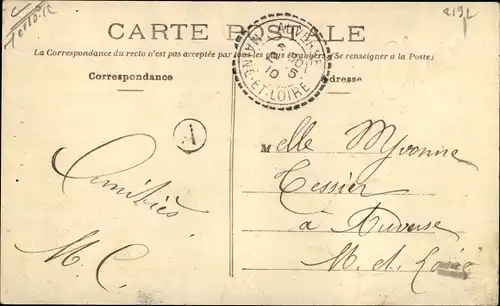 219L
CARTE POSTALE
La Correspondance du recto n'est pas acceptée par tous les pays étrangers (Se renseigner à la Poste)
Correspondance
Adresse
MAINE-ET-LOIRE
10
A
Amitiés
M. C.
Melle Yvonne
Tessier
à Auverse
M. et Loire